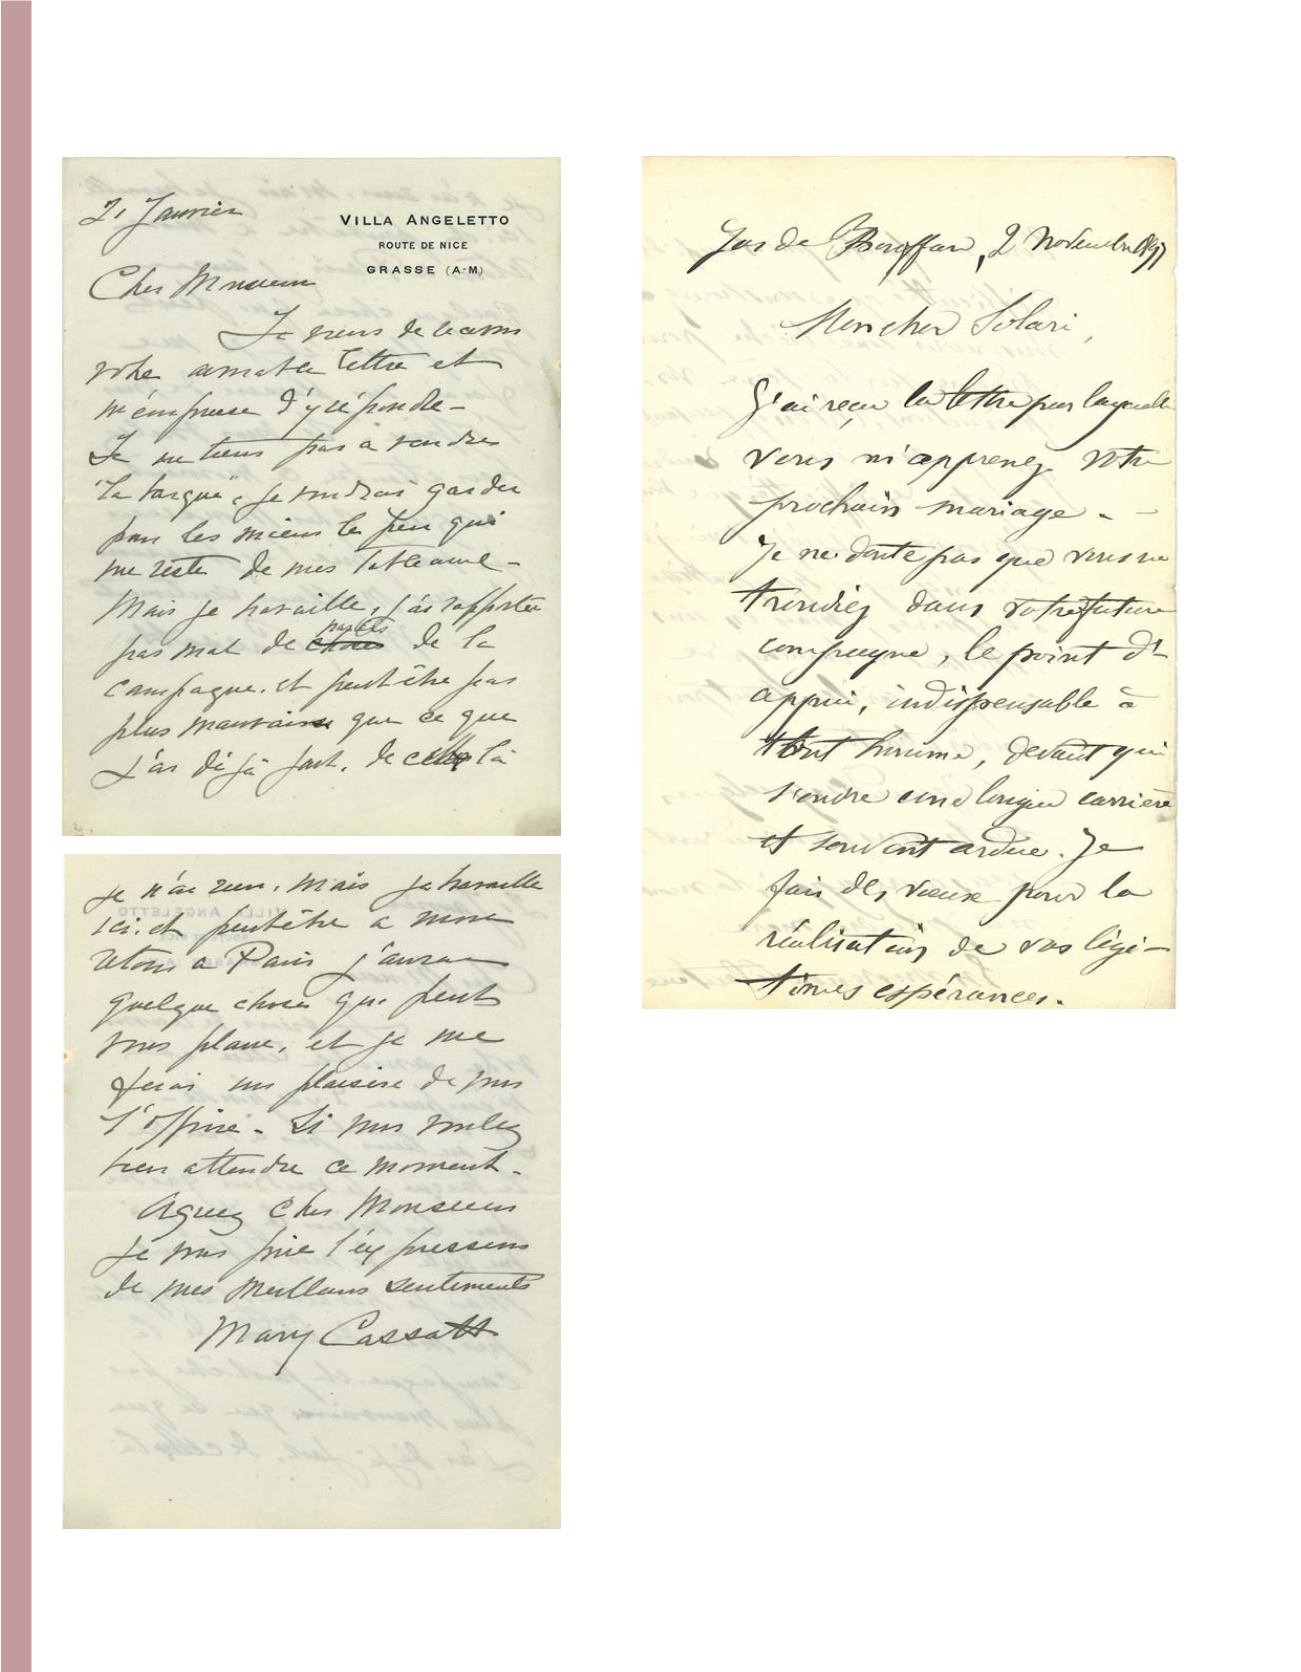 21 Janvier
VILLA ANGELETTO
ROUTE DE NICE
GRASSE (A-M)
Cher Monsieur
Je viens de recevoir
votre aimable lettre et
m'empresse d'y répondre -
Je ne tiens pas à vendre
"la barque", je voudrais garder
pour les miens le peu qui
me reste de mes tableaux -
Mais je travaille, j'ai rapporté
pastels
pas mal de choses de la
campagne. et peut être pas
plus mauvais que ce que
j'ai déjà fait. de là
je n'ai rien. Mais je travaille
ici. et peut être a mon
retour a Paris j'aurai
quelque chose qui peut
vous plaire, et je me
ferai un plaisir de vous
l'offrir - Si vous voulez
bien attendre ce moment -
Agréez Cher Monsieur
je vous prie l'expression
de mes meilleurs sentiments
Mary Cassatt
Jas de Bouffan, 2 novembre 1897
Mon cher Solari,
J'ai reçu la lettre par laquelle
vous m'apprenez votre
prochain mariage. -
Je ne doute pas que vous ne
trouviez dans votre future
compagne, le point d'
appui, indispensable à
tout homme, devant qui
s'ouvre une longue carrière
et souvent ardue. Je
fais des vœux pour la
réalisation de vos légi-
times espérances.